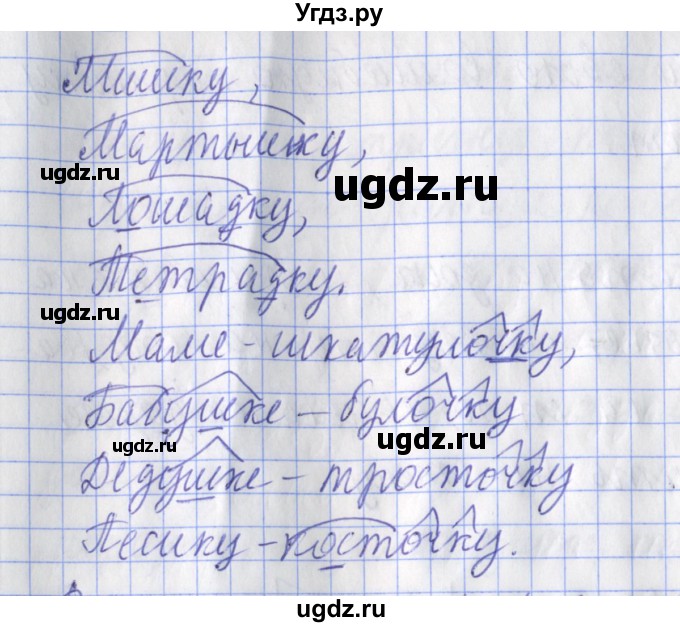 Угдз.ру
Мишку,
Мартышку,
ugdz.ru
ugdz.ru
Лошадку,
Тетрадку.
ugdz.ru
Маме - шкатулочку,
Бабушке - булочку
ugdz.ru
ugdz.ru
Дедушке - тросточку
Песику - косточку.
ugdz.ru
ugdz.ru